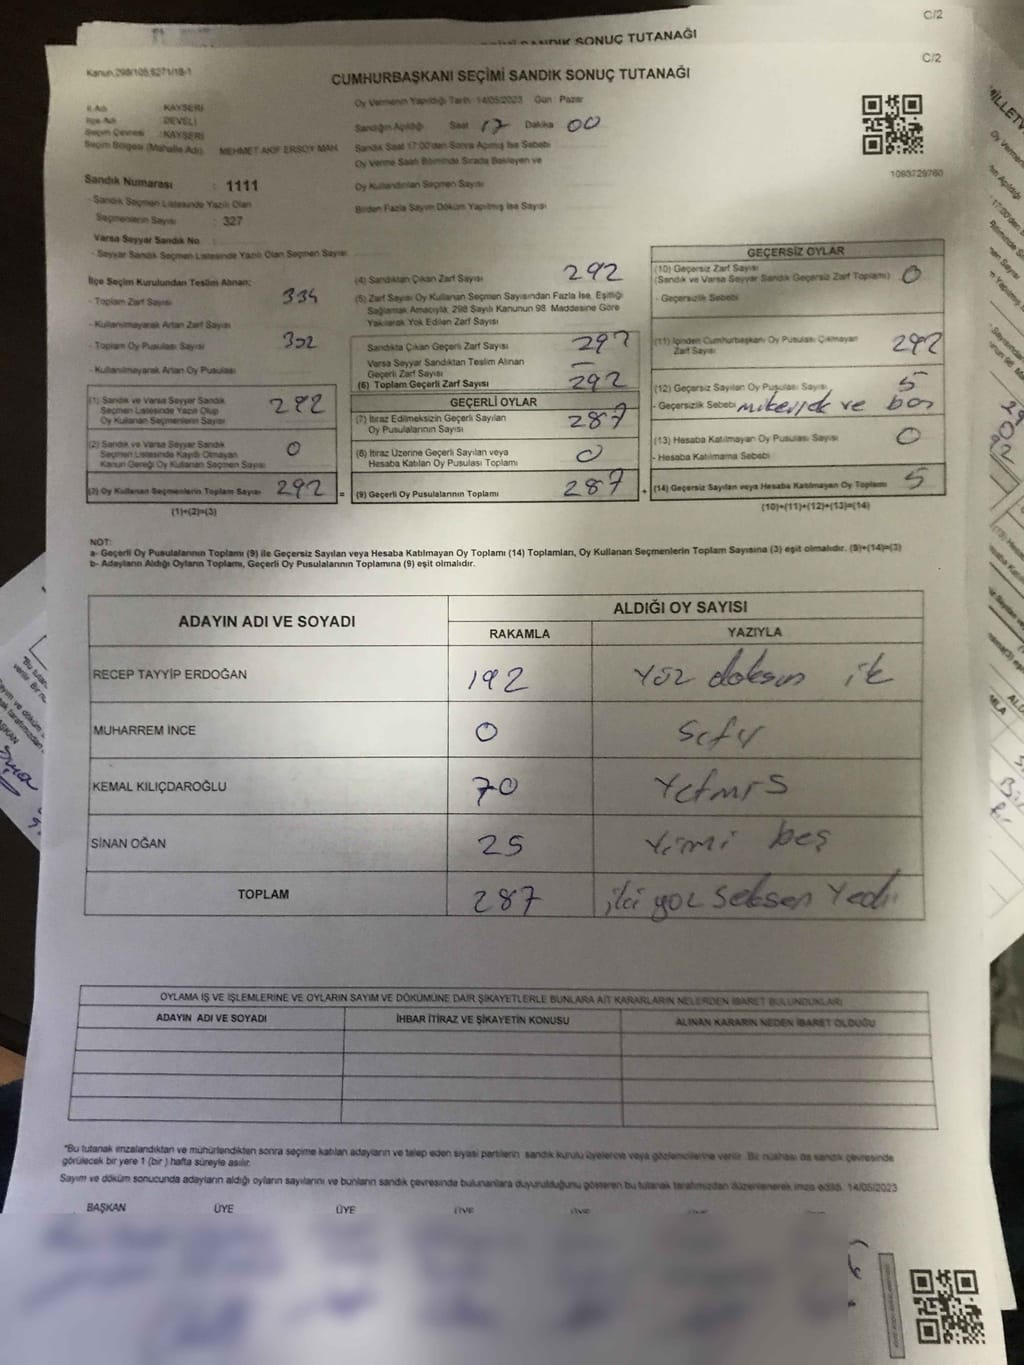 SONUÇ TUTANAĞI
C/2
C/2
Kanun 298/105,6271/18-1
CUMHURBAŞKANI SEÇİMİ SANDIK SONUÇ TUTANAĞI
İl Adı KAYSERİ
İlçe Adı DEVELİ
Seçim Çevresi : KAYSERİ
Seçim Bölgesi (Mahalle Adı) MEHMET AKİF ERSOY MAH.
Sandık Numarası : 1111
- Sandık Seçmen Listesinde Yazılı Olan
Seçmenlerin Sayısı : 327
Varsa Seyyar Sandık No
- Seyyar Sandık Seçmen Listesinde Yazılı Olan Seçmen Sayısı
Oy Vermenin Yapıldığı Tarih : 14/05/2023 Gün : Pazar
Sandığın Açıldığı Saat 17 Dakika 00
Sandık Saat 17:00'den Sonra Açılmış İse Sebebi
Oy Verme Saati Bitiminde Sırada Bekleyen ve
Oy Kullandırılan Seçmen Sayısı
Birden Fazla Sayım Döküm Yapılmış İse Sayısı
1093729760
İlçe Seçim Kurulundan Teslim Alınan:
- Toplam Zarf Sayısı 334
- Kullanılmayarak Artan Zarf Sayısı
- Toplam Oy Pusulası Sayısı 332
- Kullanılmayarak Artan Oy Pusulası
(1) Sandık ve Varsa Seyyar Sandık
Seçmen Listesinde Yazılı Olup
Oy Kullanan Seçmenlerin Sayısı 292
(2) Sandık ve Varsa Seyyar Sandık
Seçmen Listesinde Kayıtlı Olmayan
Kanun Gereği Oy Kullanan Seçmen Sayısı 0
(3) Oy Kullanan Seçmenlerin Toplam Sayısı 292 =
(1)+(2)=(3)
(4) Sandıktan Çıkan Zarf Sayısı 292
(5) Zarf Sayısı Oy Kullanan Seçmen Sayısından Fazla İse, Eşitliği
Sağlamak Amacıyla, 298 Sayılı Kanunun 98. Maddesine Göre
Yakılarak Yok Edilen Zarf Sayısı
Sandıkta Çıkan Geçerli Zarf Sayısı 292
Varsa Seyyar Sandıktan Teslim Alınan
Geçerli Zarf Sayısı —
(6) Toplam Geçerli Zarf Sayısı 292
GEÇERLİ OYLAR
(7) İtiraz Edilmeksizin Geçerli Sayılan
Oy Pusulalarının Sayısı 287
(8) İtiraz Üzerine Geçerli Sayılan veya
Hesaba Katılan Oy Pusulası Toplamı 0
(9) Geçerli Oy Pusulalarının Toplamı 287 +
GEÇERSİZ OYLAR
(10) Geçersiz Zarf Sayısı
(Sandık ve Varsa Seyyar Sandık Geçersiz Zarf Toplamı) 0
- Geçersizlik Sebebi
(11) İçinden Cumhurbaşkanı Oy Pusulası Çıkmayan
Zarf Sayısı 292
(12) Geçersiz Sayılan Oy Pusulası Sayısı 5
- Geçersizlik Sebebi ve boş
(13) Hesaba Katılmayan Oy Pusulası Sayısı 0
- Hesaba Katılmama Sebebi
(14) Geçersiz Sayılan veya Hesaba Katılmayan Oy Toplamı 5
(10)+(11)+(12)+(13)=(14)
NOT:
a- Geçerli Oy Pusulalarının Toplamı (9) ile Geçersiz Sayılan veya Hesaba Katılmayan Oy Toplamı (14) Toplamları, Oy Kullanan Seçmenlerin Toplam Sayısına (3) eşit olmalıdır. (9)+(14)=(3)
b- Adayların Aldığı Oyların Toplamı, Geçerli Oy Pusulalarının Toplamına (9) eşit olmalıdır.
ADAYIN ADI VE SOYADI ALDIĞI OY SAYISI
RAKAMLA YAZIYLA
RECEP TAYYİP ERDOĞAN 192 Yüz doksan ik
MUHARREM İNCE 0 Sıfır
KEMAL KILIÇDAROĞLU 70 Yetmiş
SİNAN OĞAN 25 Yirmi beş
TOPLAM 287 iki yüz seksen Yedi
OYLAMA İŞ VE İŞLEMLERİNE VE OYLARIN SAYIM VE DÖKÜMÜNE DAİR ŞİKAYETLERLE BUNLARA AİT KARARLARIN NELERDEN İBARET BULUNDUKLARI
ADAYIN ADI VE SOYADI İHBAR İTİRAZ VE ŞİKAYETİN KONUSU ALINAN KARARIN NEDEN İBARET OLDUĞU
*Bu tutanak imzalandıktan ve mühürlendikten sonra seçime katılan adayların ve talep eden siyasi partilerin sandık kurulu üyelerine veya gözlemcilerine verilir. Bir nüshası da sandık çevresinde
görülecek bir yere 1 (bir) hafta süreyle asılır.
Sayım ve döküm sonucunda adayların aldığı oyların sayılarını ve bunların sandık çevresinde bulunanlara duyurulduğunu gösteren bu tutanak tarafımızdan düzenlenerek imza edildi. 14/05/2023
BAŞKAN ÜYE ÜYE ÜYE ÜYE